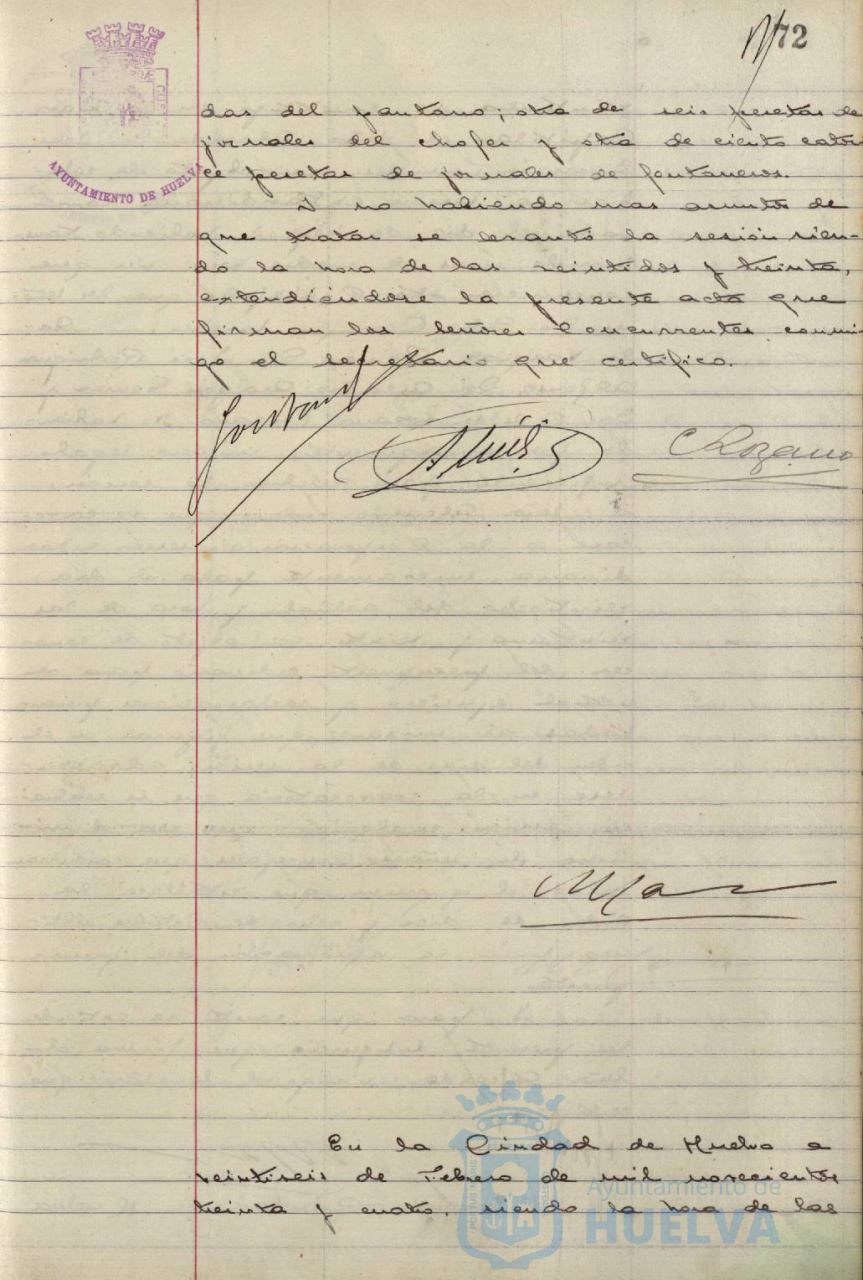 72
AYUNTAMIENTO DE HUELVA
das del pantano; otra de seis pesetas de
jornales del chofer y otra de ciento cator
ce pesetas de jornales de fontaneros.
Y no habiendo mas asuntos de
que tratar se levantó la sesión sien-
do la hora de las veintidos y treinta,
extendiéndose la presente acta que
firman los señores concurrentes conmi-
go el secretario que certifico.
Lozano
En la Ciudad de Huelva a
veintiseis de Febrero de mil novecientos
treinta y cuatro, siendo la hora de las
Ayuntamiento de
HUELVA